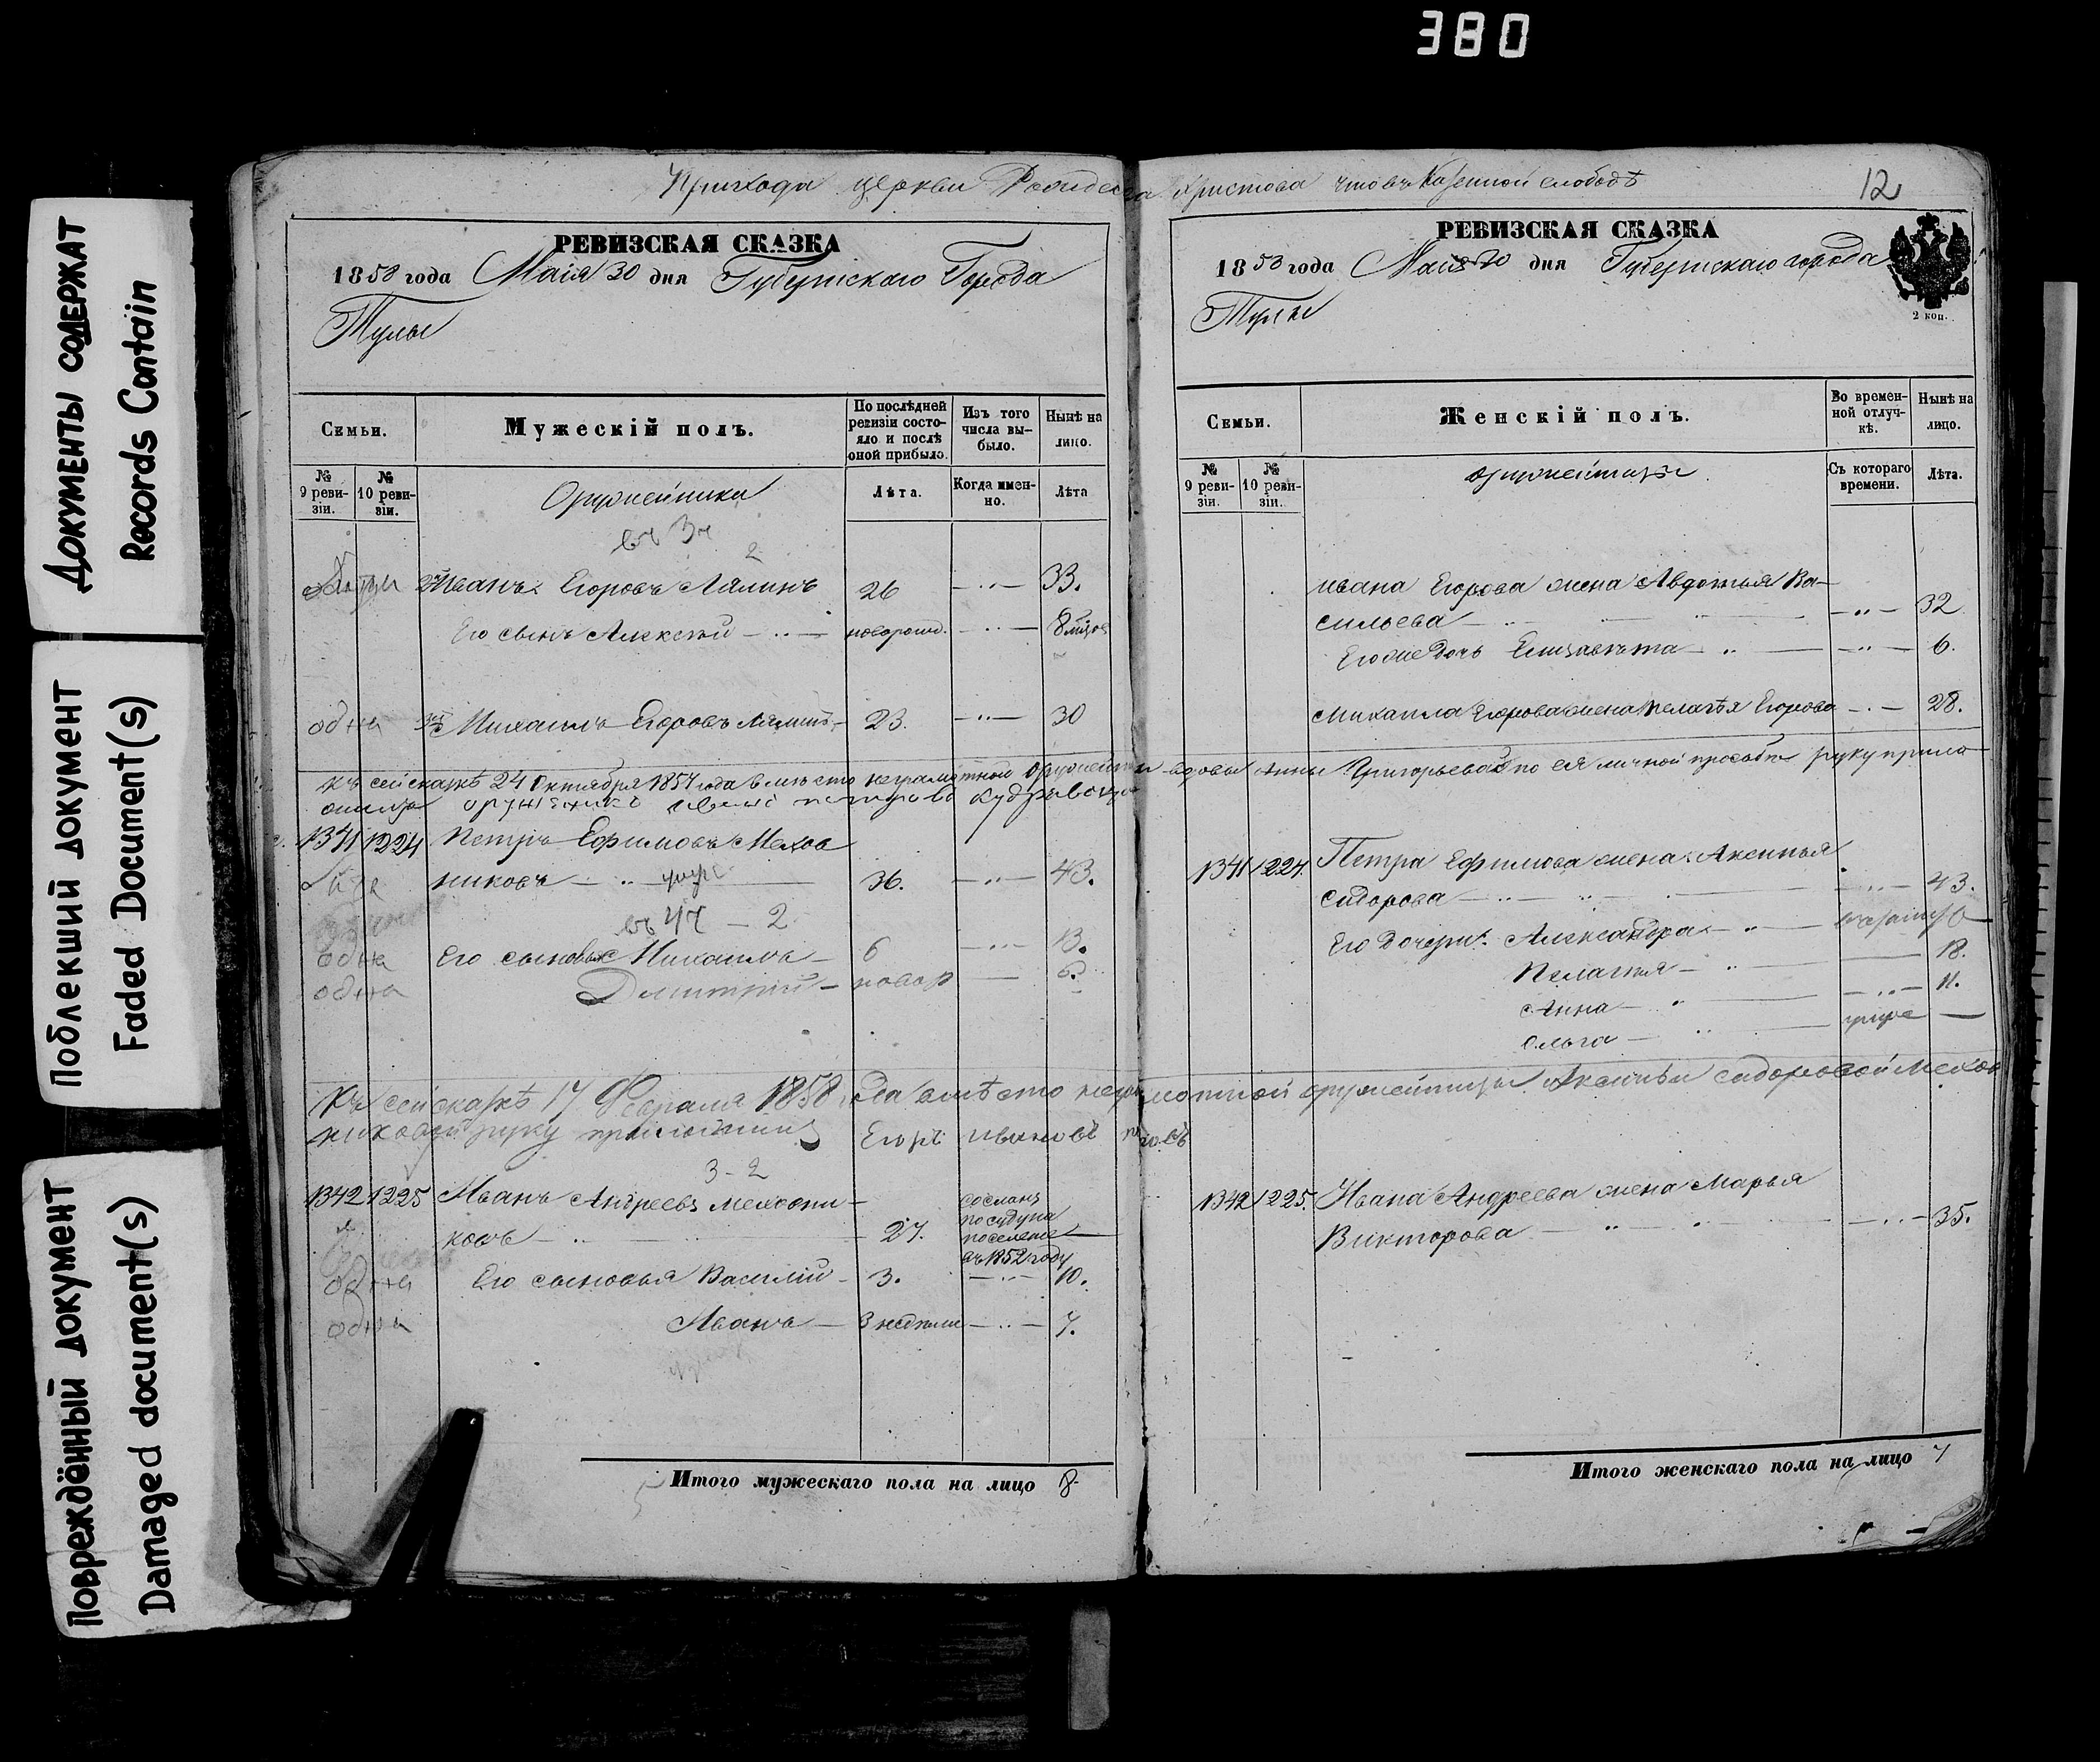 380
Документы содержат
Records Contain
Поблекший документ
Faded Document(s)
Повреждённый документ
Damaged document(s)
Прихода церкви Рождества Христова что въ Казенной слободѣ
12
РЕВИЗСКАЯ СКАЗКА
1858 года Маія 30 дня Губернскаго Города
Тулы
Семьи.
Мужескій полъ.
По послѣдней ревизіи состояло и послѣ оной прибыло.
Изъ того числа выбыло.
Нынѣ на лицо.
№ 9 ревизіи.
№ 10 ревизіи.
Лѣта.
Когда именно.
Лѣта
Оружейники
въ 3ч
2
Иванъ Егоровъ Лялинъ 26 — 33.
Его сынъ Алексѣй — новорожд. — 8 мѣцов
одна Михаилъ Егоровъ Лялинъ 23. — 30
Къ сей сказкѣ 24 Октября 1857 года вмѣсто неграмотной оружейницы вдовы Анны Григорьевой по ея личной прозьбѣ руку прило
1341 1224 Петръ Ефимовъ Мехов
никовъ — 36. — 43.
въ 4ч — 2
одна Его сыновья Михаилъ — 6 — 13.
одна Дмитрій — новор — 6.
Къ сей сказкѣ 17 Февраля 1858 года вмѣсто неграмотной оружейницы Аксиньи Сидоровой Мехов
никовой руку приложилъ Егоръ Ивановъ
3 - 2
1342 1225 Иванъ Андреевъ Меховни
ковъ — 27. сосланъ по суду на поселеніе въ 1852 году
одна Его сыновья Василій — 3. — 10.
одна Иванъ — 3 недѣли — 7.
Итого мужескаго пола на лицо 8
РЕВИЗСКАЯ СКАЗКА
1858 года Маія 30 дня Губернскаго города
Тулы
2 коп.
Семьи.
Женскій полъ.
Во временной отлучкѣ.
Нынѣ на лицо.
№ 9 ревизіи.
№ 10 ревизіи.
Съ котораго времени.
Лѣта.
Ивана Егорова жена Авдотья Ва-
сильева — 32
Его же дочь Елизавѣта — 6.
Михаила Егорова жена Пелагѣя Егорова — 28.
1341 1224. Петра Ефимова жена Аксинья
Сидорова — 43.
Его дочери: Александра — взамужѣ
Пелагея — 18.
Анна — 11.
Ольга — умре —
1342 1225. Ивана Андреева жена Марья
Викторова — 35.
Итого женскаго пола на лицо 7